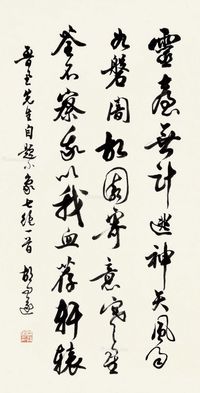 靈臺無計逃神矢風雨
如磐闇故園寄意寒星
荃不察我以我血荐軒轅
魯迅先生自題小象七絕一首 胡問遂